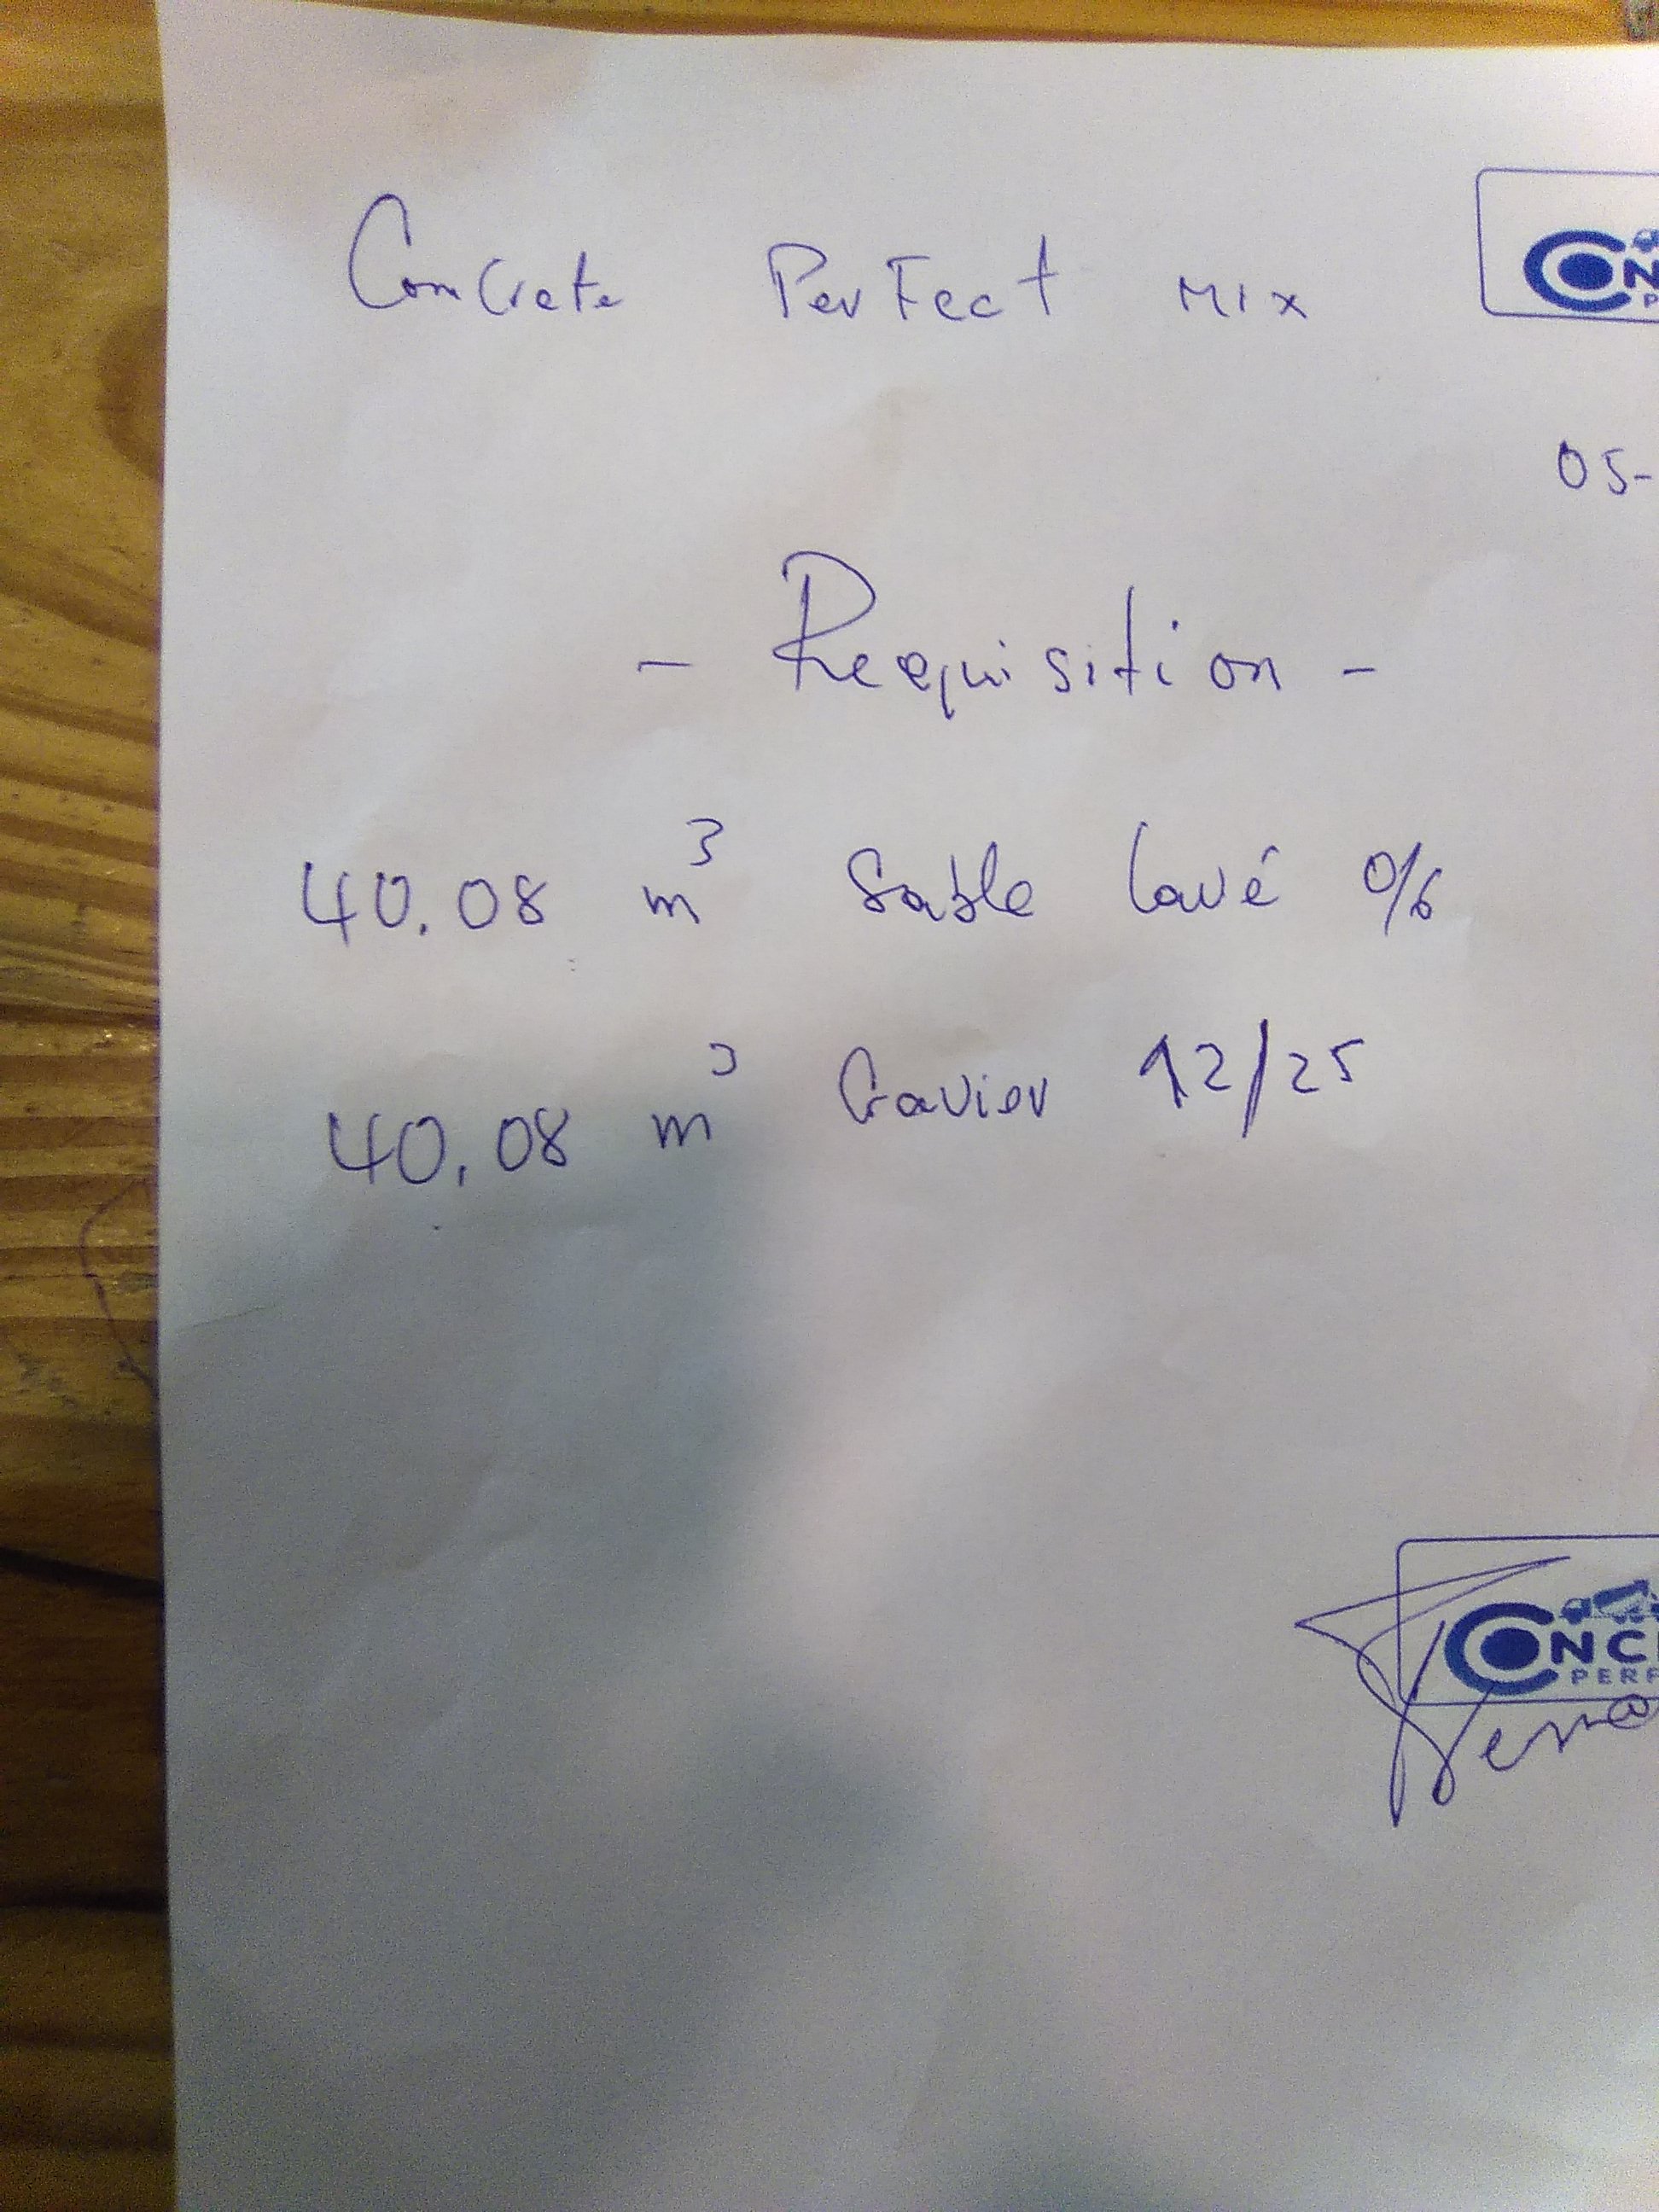 Concrete Perfect Mix
CON
P
05-
- Requisition -
40.08 m³ Sable lavé 0/6
40.08 m³ Gravier 12/25
CONC
PERF